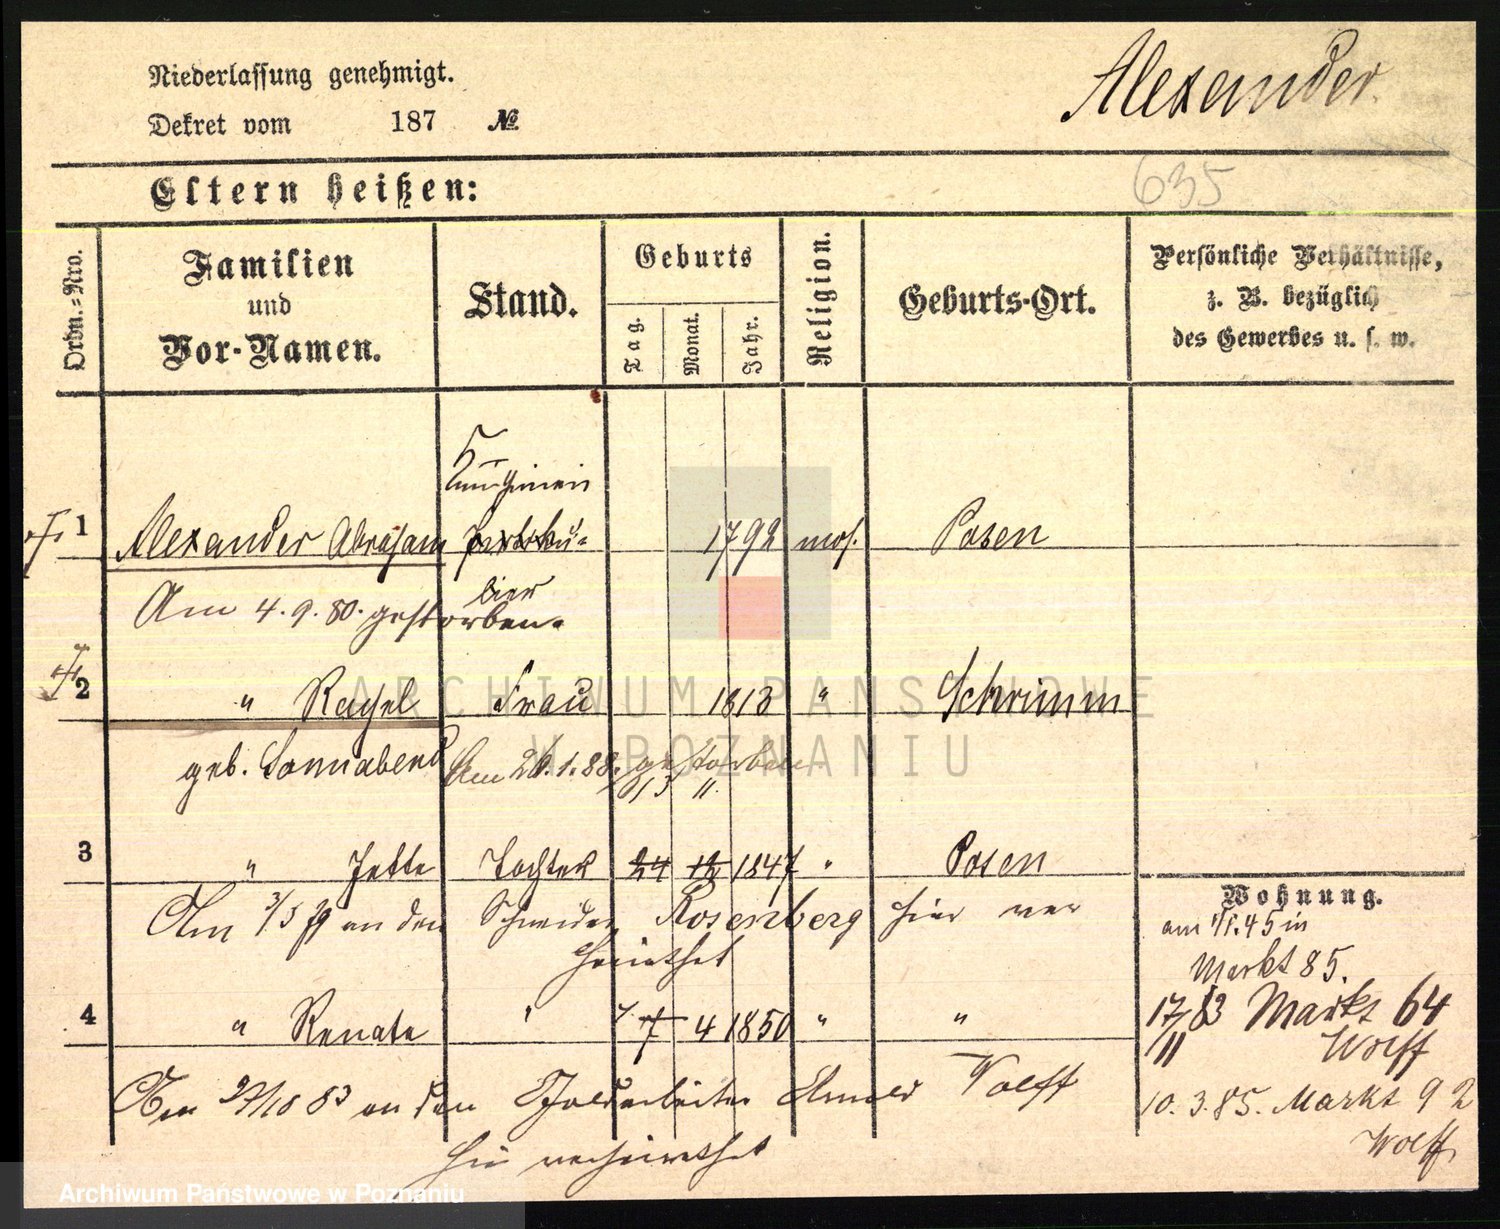 Niederlassung genehmigt.
Alexander.
Dekret vom 187 №
635
Eltern heißen:
Ordn.=Nro.
Familien
und
Vor-Namen.
Stand.
Geburts
Tag.
Monat.
Jahr.
Religion.
Geburts-Ort.
Persönliche Verhältnisse,
z. B. bezüglich
des Gewerbes u. s. w.
1 Alexander Abraham 1792 mos. Posen
Am 4. 9. 80. gestorben.
2 " Rachel Frau 1813 " Schrimm
geb. Sonnabend Am 26. 1. 88. gestorben
13 11.
3 " Jette Tochter 24 12 1847 " Posen
Am 3/5 79 an den Schneider Rosenberg hier ver
heirathet
4 " Renate " 7 4 1850 " "
Am 27/10 83 an den Goldarbeiter Arnold Wolff
hier verheirathet
Wohnung.
Markt 85.
17/11 83 Markt 64
Wolff
10. 3. 85. Markt 92
Wolff
ARCHIWUM PAŃSTWOWE
W POZNANIU
Archiwum Państwowe w Poznaniu